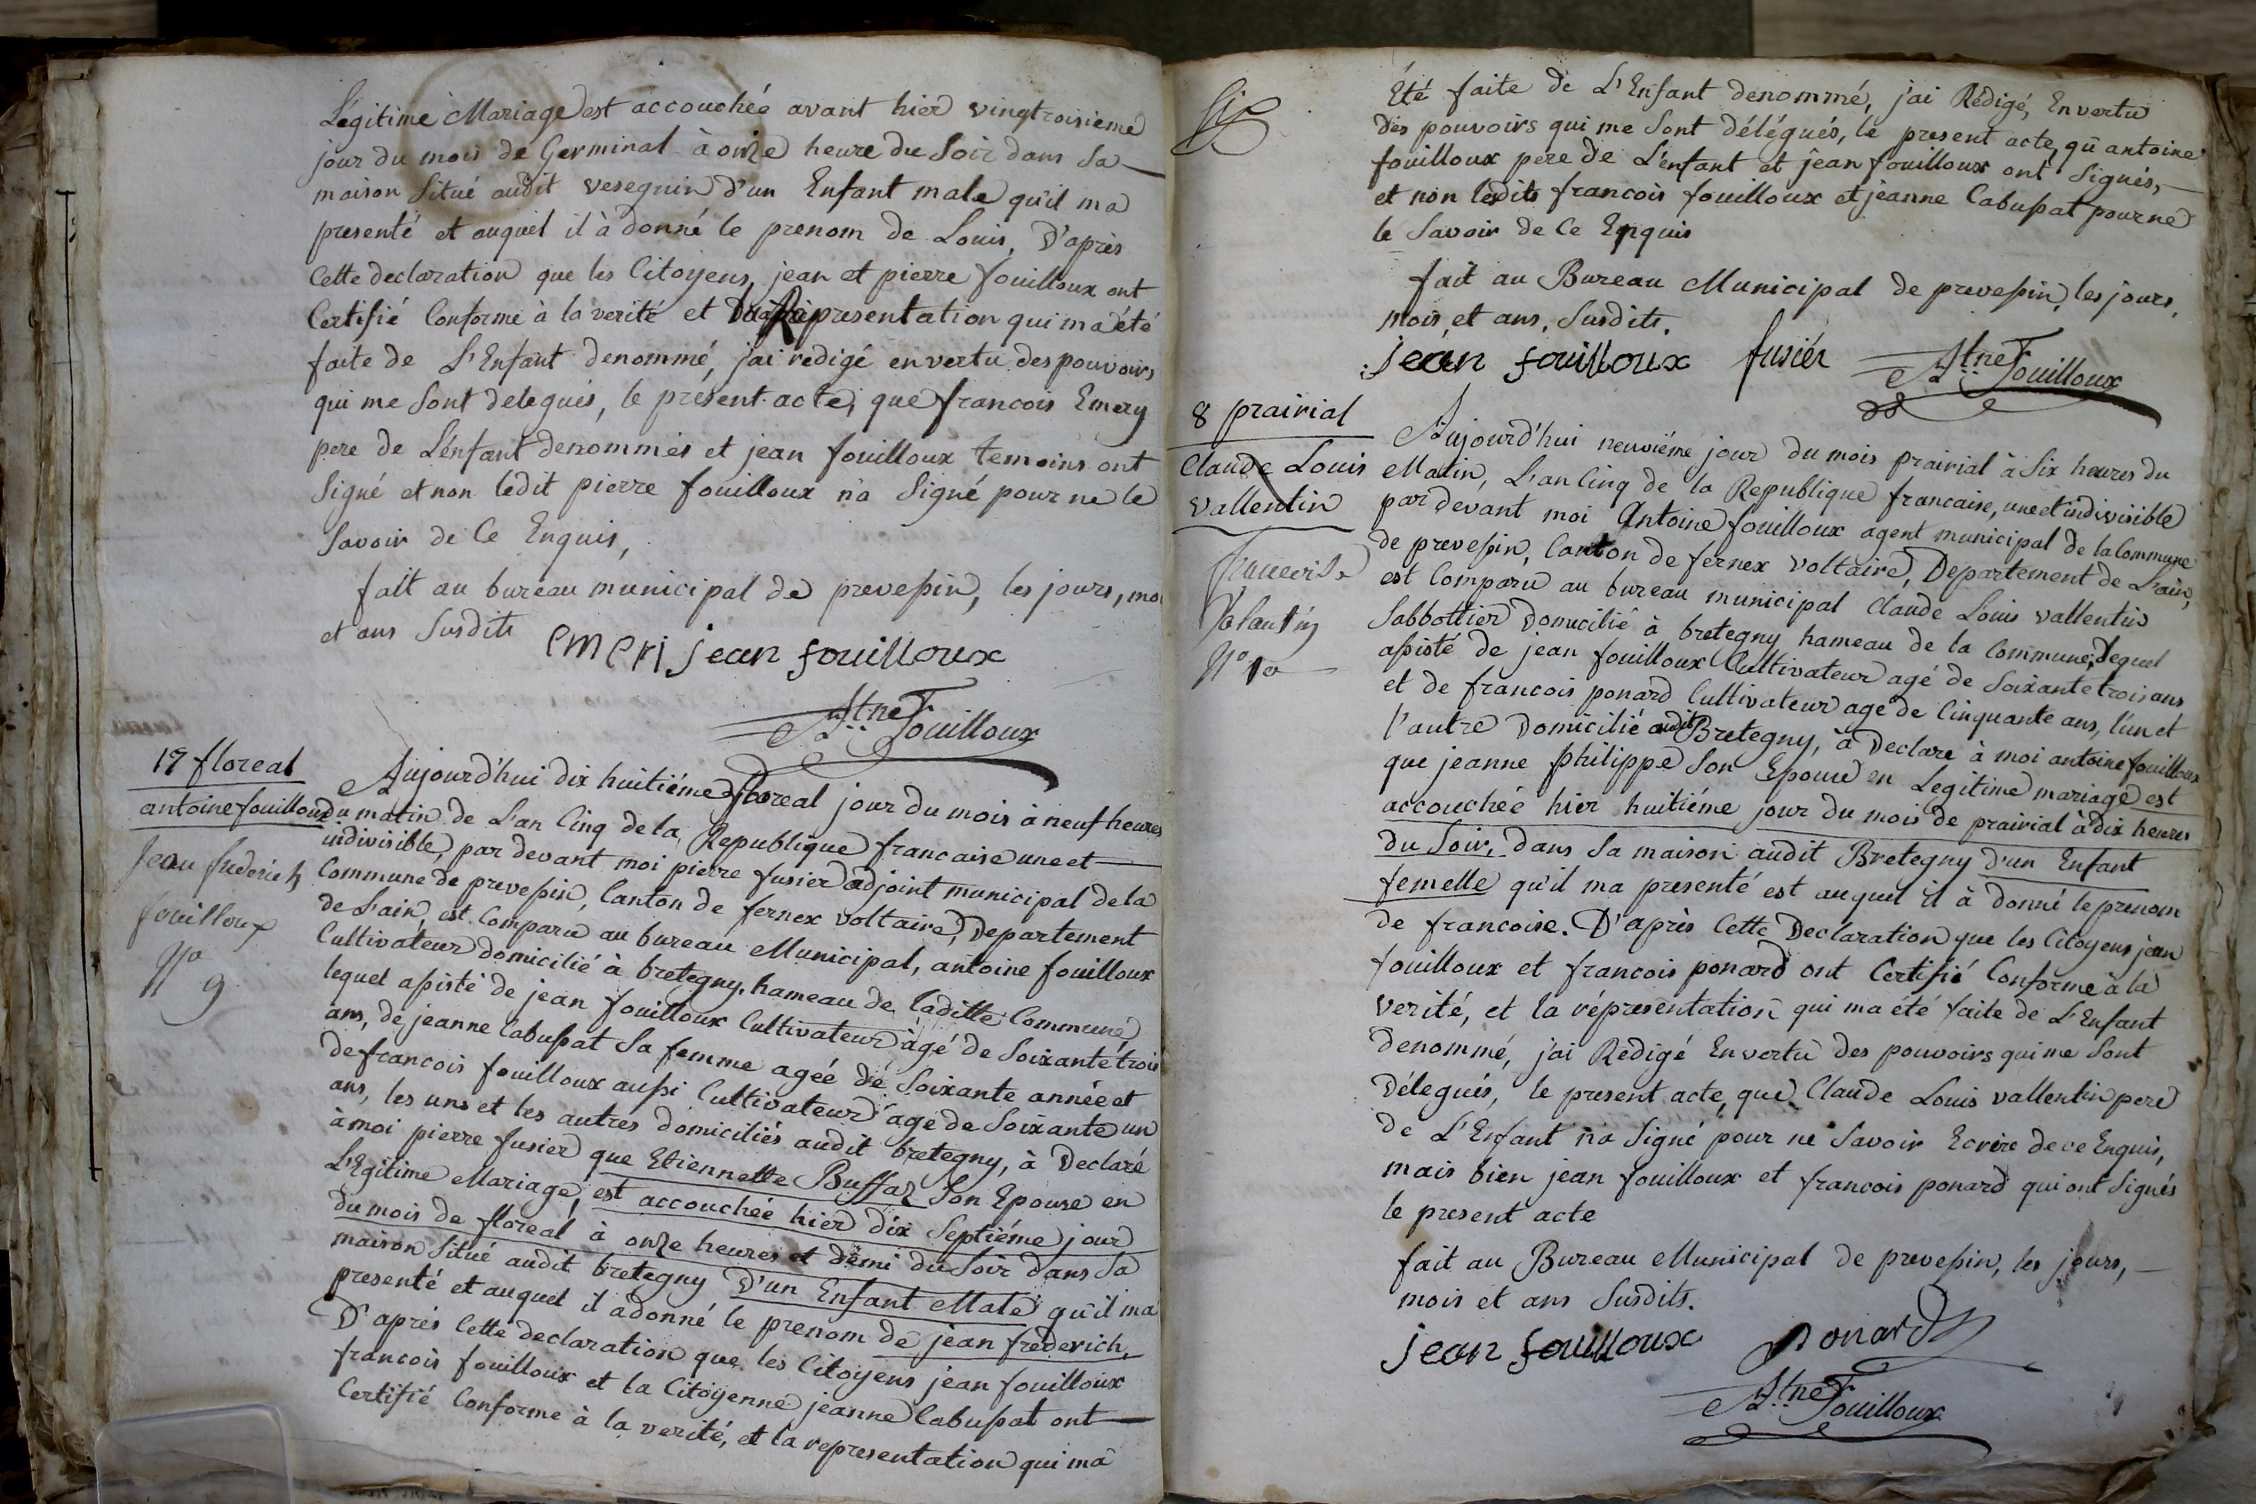 Légitime Mariage est accouchée avant hier vingtroisieme
jour du mois de Germinal à onze heure du Soir dans Sa
maison Situé audit vesegnin d'un Enfant male qu'il ma
presenté et auquel il à donné le prenom de Louis, D'après
Cette declaration que les Citoyens, jean et pierre fouilloux ont
Certifié Conforme à la verité et Représentation qui ma été
faite de L'Enfant denommé, j'ai redigé en vertu des pouvoirs
qui me Sont delegués, le présent acte, que francois Emery
pere de L'énfant denommés et jean fouilloux temoins ont
Signé et non ledit pierre fouilloux n'a Signé pour ne le
Savoir de Ce Enquis,
fait au bureau municipal de prevessin, les jours, moi
et ans Susdits
emeri jean fouilloux
Atne Fouilloux
17 floreal
antoine fouilloux
Jean frederich
fouilloux
No
9
Aujourd'hui dix huitiéme floreal jour du mois à neuf heures
du matin de L'an Cinq de la Republique francaise une et
indivisible, par devant moi pierre fusier adjoint municipal de la
Commune de prevessin, Canton de fernex voltaire, Departement
de L'ain, est Comparu au bureau Municipal, antoine fouilloux
Cultivateur domicilié à bretegny, hameau de laditte Commune
lequel assisté de jean fouilloux Cultivateur àgé de Soixante trois
ans, de jeanne Cabussat Sa femme ageé de Soixante année et
de francois fouilloux aussi Cultivateur age de Soixante un
ans, les uns et les autres domiciliés audit bretegny, à Declaré
à moi pierre fusier que Etiennette Buffaz Son Epouse en
L'Egitime Mariage, est accouchée hier dix Septiéme jour
du mois de floreal à onze heures et demi du Soir dans Sa
maison Situé audit bretegny D'un Enfant Male qu'il ma
presenté et auquel il àdonné le prenom de jean frederich,
D'aprés Cette declaration que les Citoyens jean fouilloux
francois fouilloux et la Citoyenne jeanne Cabussat ont
Certifié Conforme à la verité, et la representation qui ma
Six
Été faite de L'Enfant denommé, j'ai Rédigé, En vertu
des pouvoirs qui me Sont délégués, le present acte, qu antoine
fouilloux pere de L'enfant et jean fouilloux ont Signés,
et non lesdits francois fouilloux et jeanne Cabussat pour ne
le Savoir de Ce Enquis
fait au Bureau Municipal de prevessin, les jours,
mois, et ans, Susdits.
jean fouilloux fusier Atne Fouilloux
8 prairial
Claude Louis
Vallentin
francoise
Valantin
No 10
Aujourd'hui neuviéme jour du mois prairial à Six heures du
Matin, L'an Cinq de la Republique francaise, une et indivisible
par devant moi Antoine fouilloux agent municipal de la Commune
de prevessin, Canton de fernex voltaire, Departement de L'ain,
est Comparu au bureau municipal Claude Louis vallentin
Sabbottier Domicilié à bretegny hameau de la Commune, Lequel
assisté de jean fouilloux Cultivateur agé de Soixante trois ans
et de francois ponard Cultivateur age de Cinquante ans, l'un et
l'autre Domicilié audit Bretegny, à Declare à moi antoine fouilloux
que jeanne philippe Son Epouse en Legitime mariage est
accouchée hier huitiéme jour du mois de prairial à dix heures
du Soir, dans Sa maison audit Bretegny d'un Enfant
femelle qu'il ma presenté est auquel il à donné le prenom
de francoise. D'aprés Cette Declaration que les Citoyens jean
fouilloux et francois ponard ont Certifié Conforme à la
verité, et la réprésentation qui ma été faite de L'Enfant
denommé, j'ai Redigé En vertu des pouvoirs qui me Sont
Délegués, le present acte, que Claude Louis vallentin pere
de L'Enfant n'a Signé pour ne Savoir Ecrire de ce Enquis,
mais bien jean fouilloux et francois ponard qui ont Signés
le present acte
fait au Bureau Municipal de prevessin, les jours,
mois et ans Susdits.
jean fouilloux ponard
Atne Fouilloux